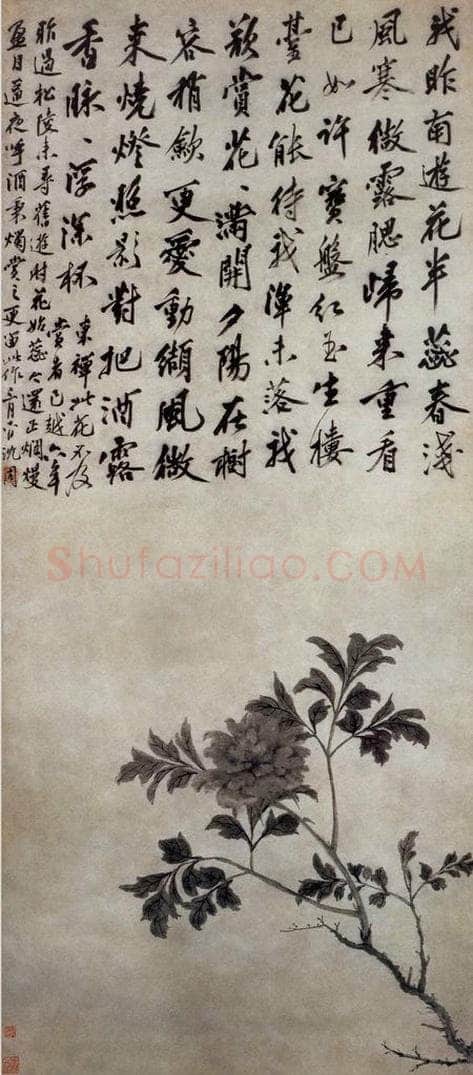 我昨南遊花半蕊春淺
風寒微露腮歸来重看
已如許寶盤紅玉生樓
臺花能待我渾未落我
欲賞花〻滿開夕陽在樹
容稍斂更愛動纈風微
来燒燈照影對把酒露
香脉〻浮深杯 東禪此花不及
賞者已越六年
昨過松陵未尋舊遊時花始蕊今還正爛熳
盈目遂夜呼酒秉燭賞之更留此作 沈周
Shufaziliao.COM